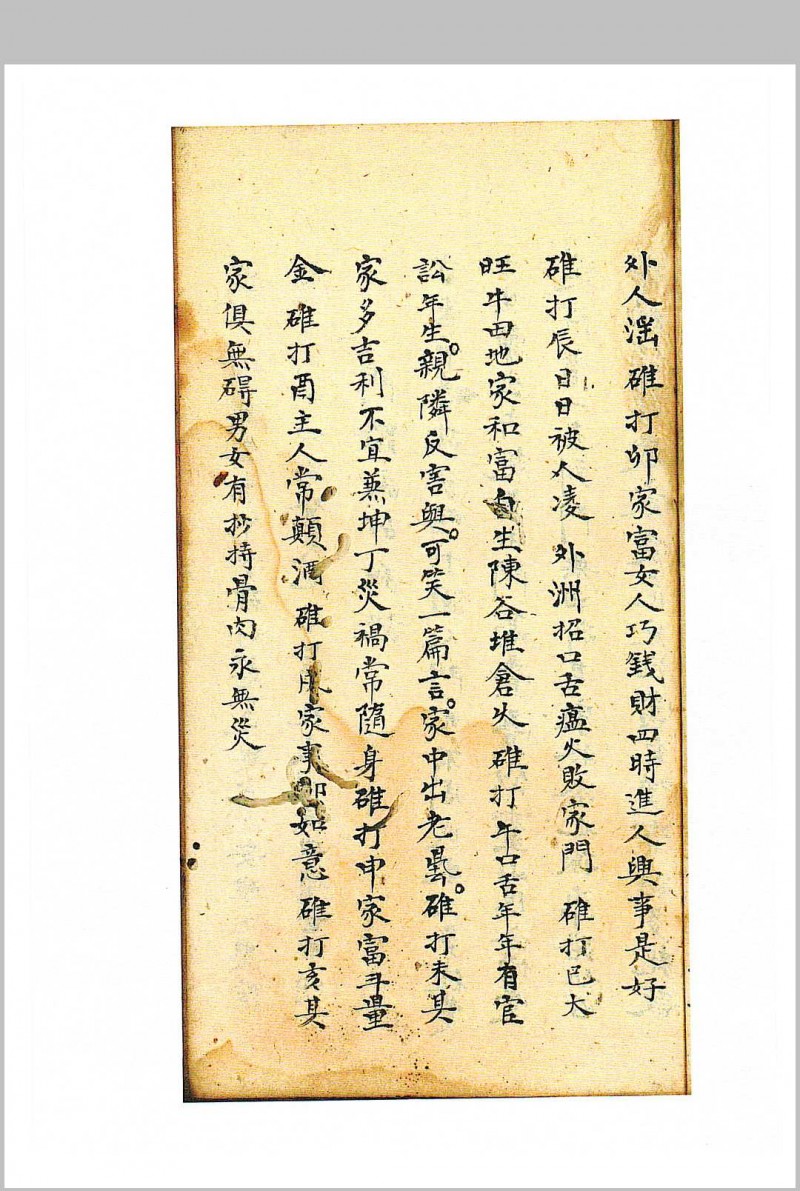 外人滛 碓打卯家富女人巧錢財四時進人興事是好
碓打辰日日被人凌 外洲招口舌瘟火敗家門 碓打巳大
旺牛田地家和富自生陳谷堆倉火 碓打午口舌年年有官
訟年生。親隣反害興。可笑一篇言。家中出老。碓打未其
家多吉利不宜兼坤丁災禍常隨身碓打申家富斗量
金 碓打酉主人常顛酒 碓打戌家事如意 碓打亥其
家俱無碍男女有抄持骨肉永無災